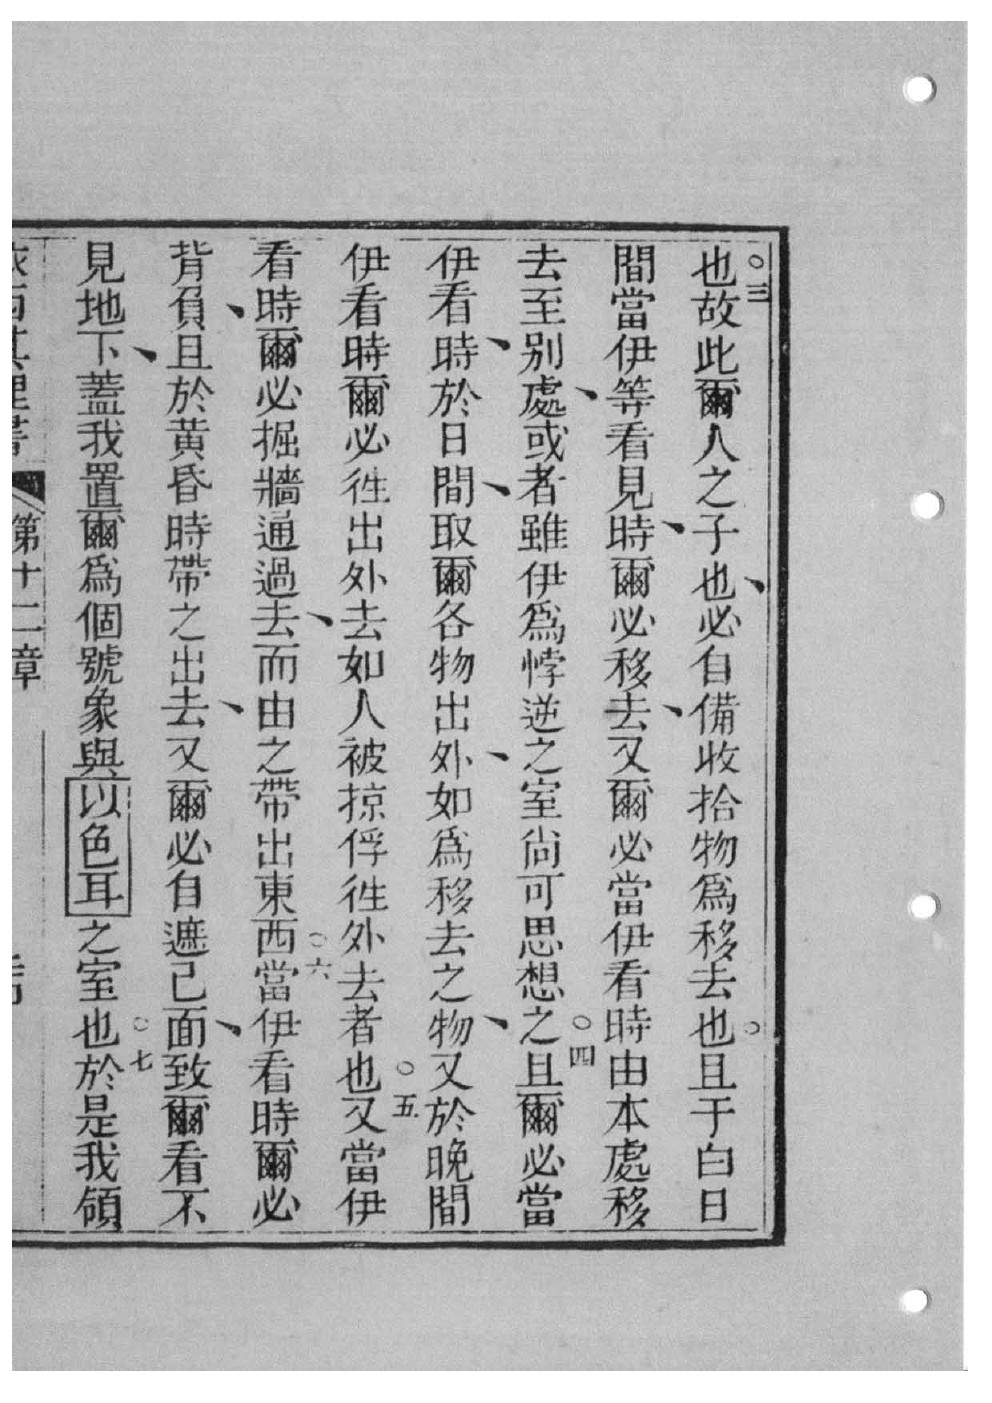 也○三故此爾人之子也、必自備收拾物爲移去也○且于白日
間當伊等看見時、爾必移去、又爾必當伊看時由本處移
去至别處、或者雖伊爲悖逆之室尚可思想之○四且爾必當
伊看時、於日間、取爾各物出外、如爲移去之物、又於晚間
伊看時爾必徃出外去如人被掠俘徃外去者也○五又當伊
看時爾必掘牆通過去、而由之帶出東西○六當伊看時爾必
背負、且於黄昏時帶之出去、又爾必自遮己面、致爾看不
見地下、蓋我置爾爲個號象與以色耳之室也○七於是我領
第十二章